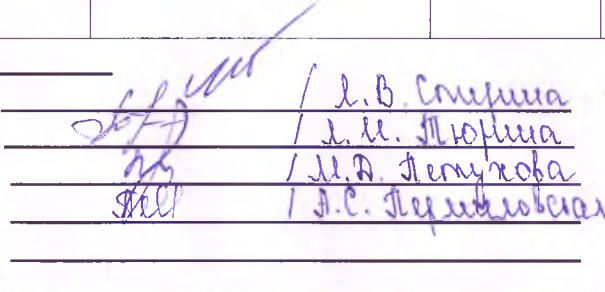 / Л.В. Спирина
/ Л.М. Тюрина
/ М.Д. Петухова
/ А.С. Пермиловская